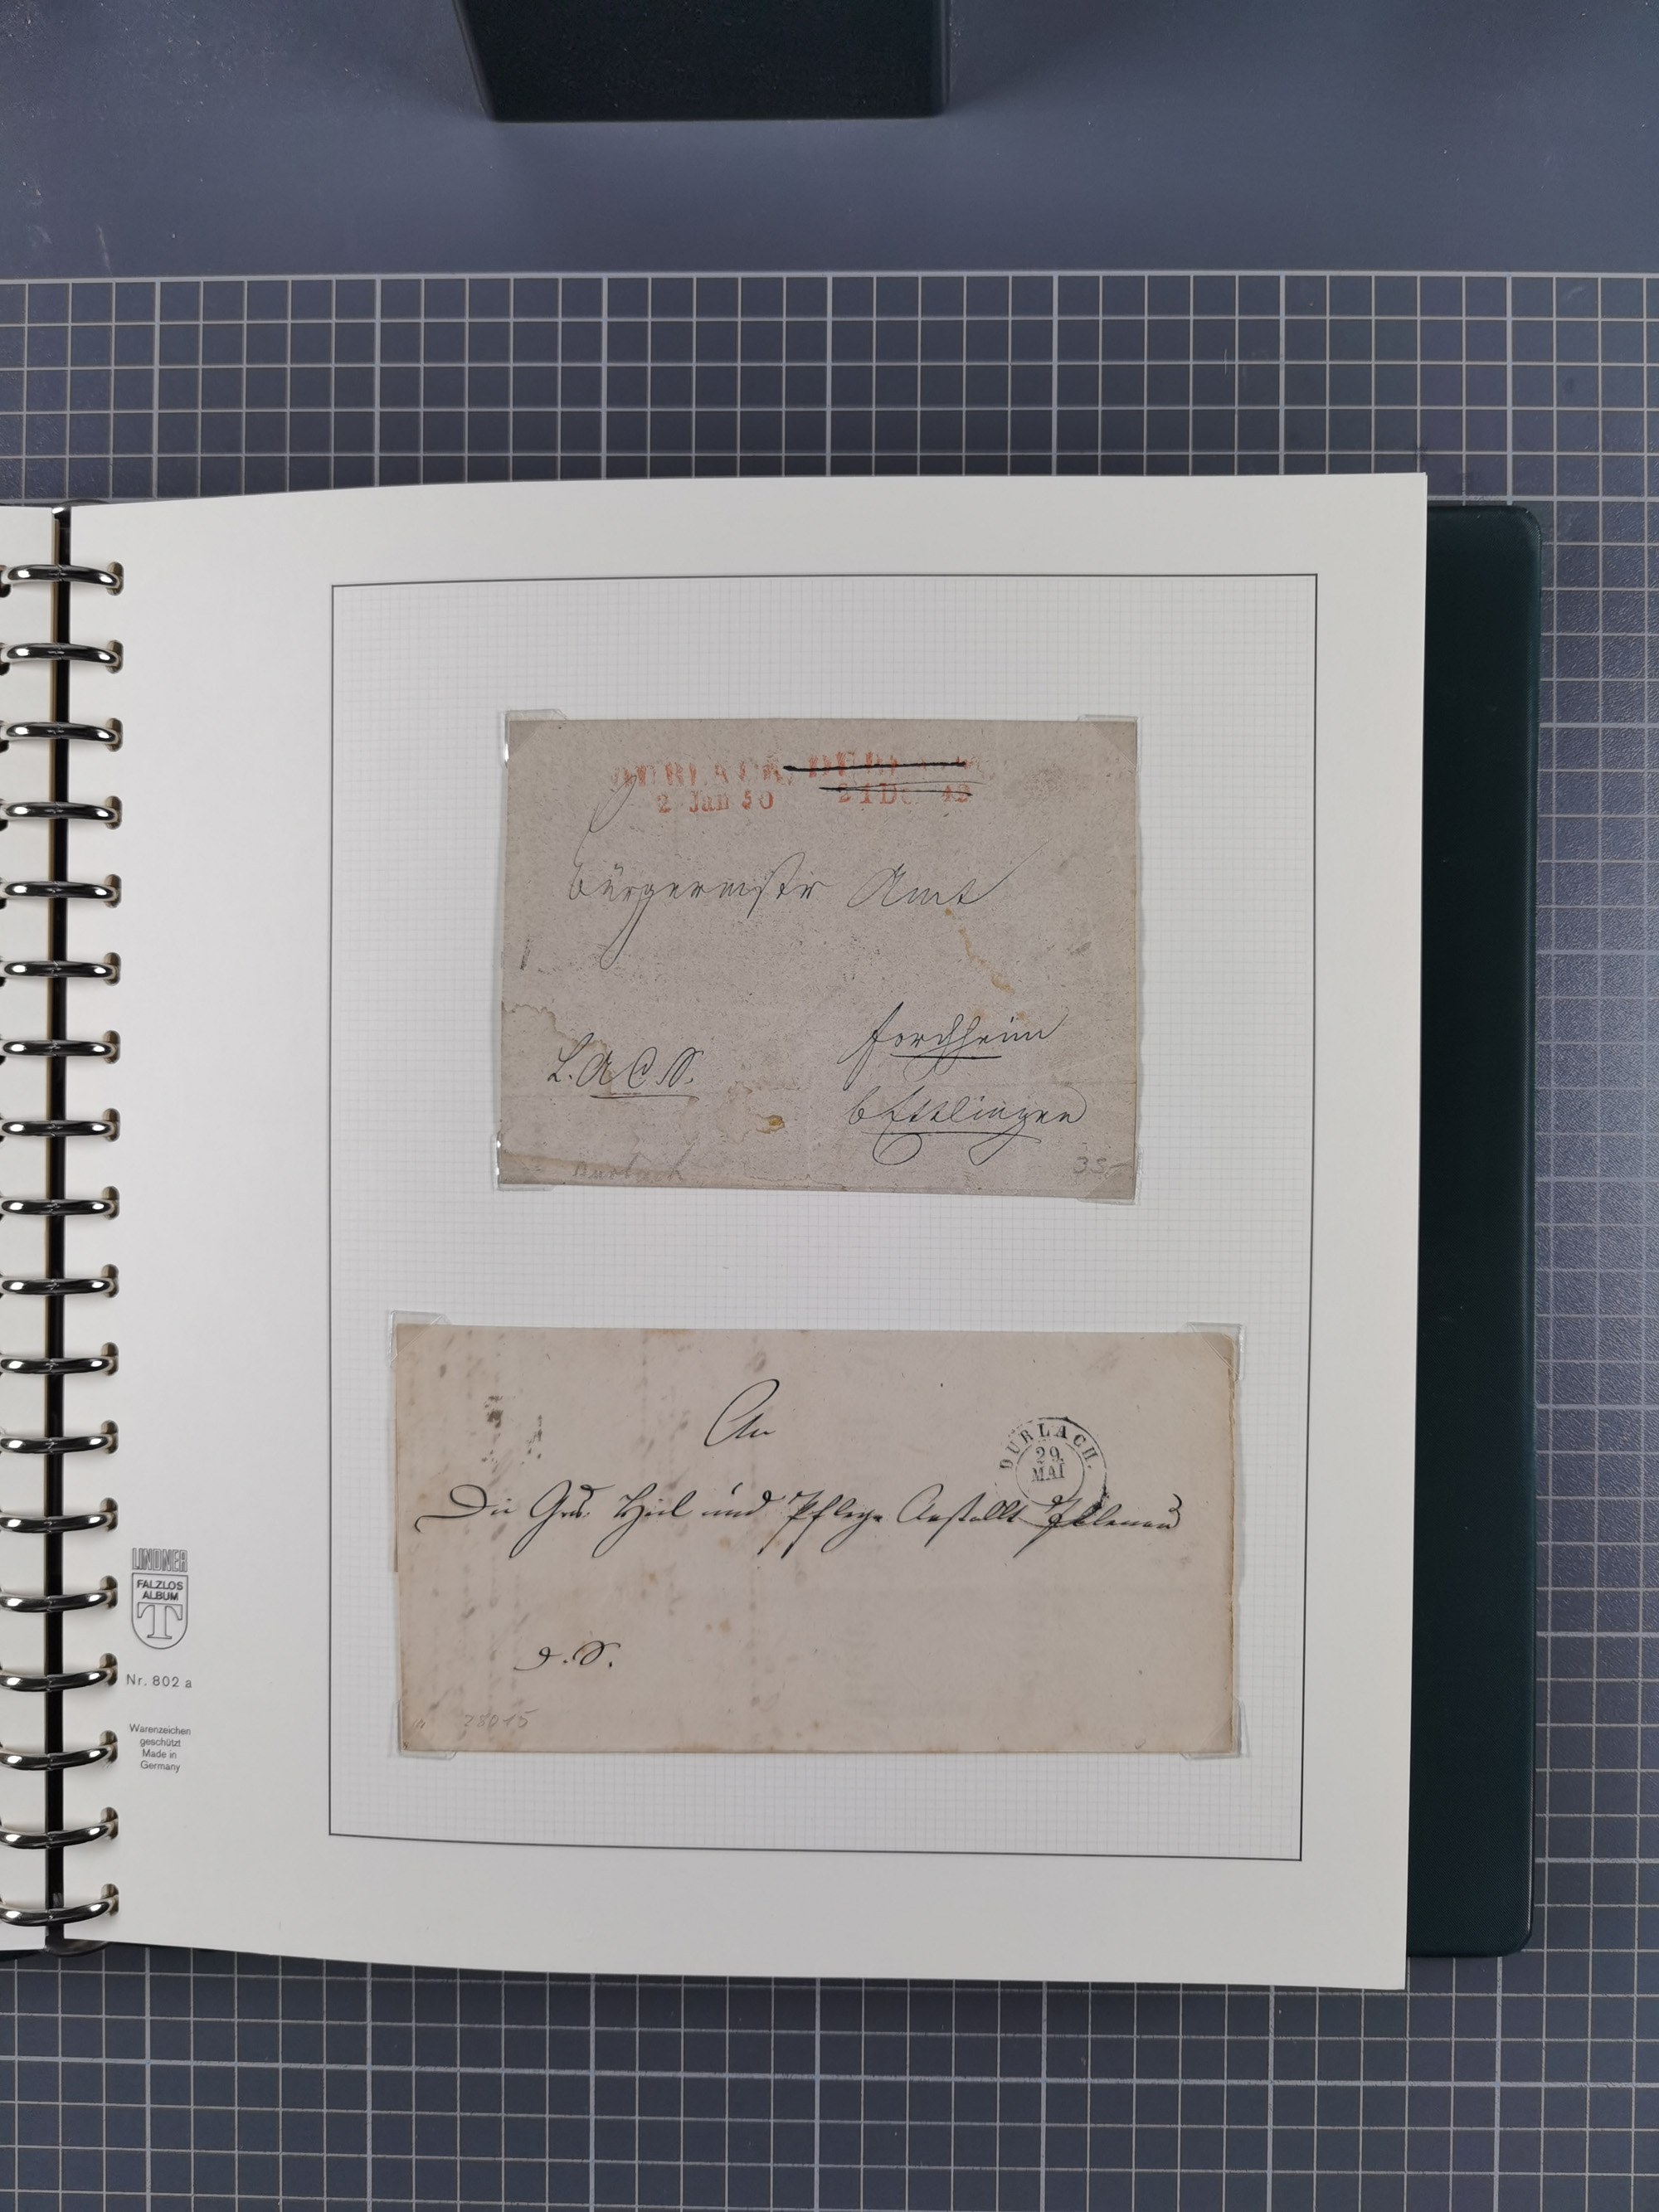 DURLACH
2 Jan 50
Bürgermstr Amt
Forchheim
L. A. C. S.
b Ettlingen
Durlach
35-
An
DURLACH.
29.
MAI
Die Gr. Heil und Pflege Anstallt Illenau
D. S.
28015
LINDNER
FALZLOS
ALBUM
T
Nr. 802 a
Warenzeichen
geschützt
Made in
Germany